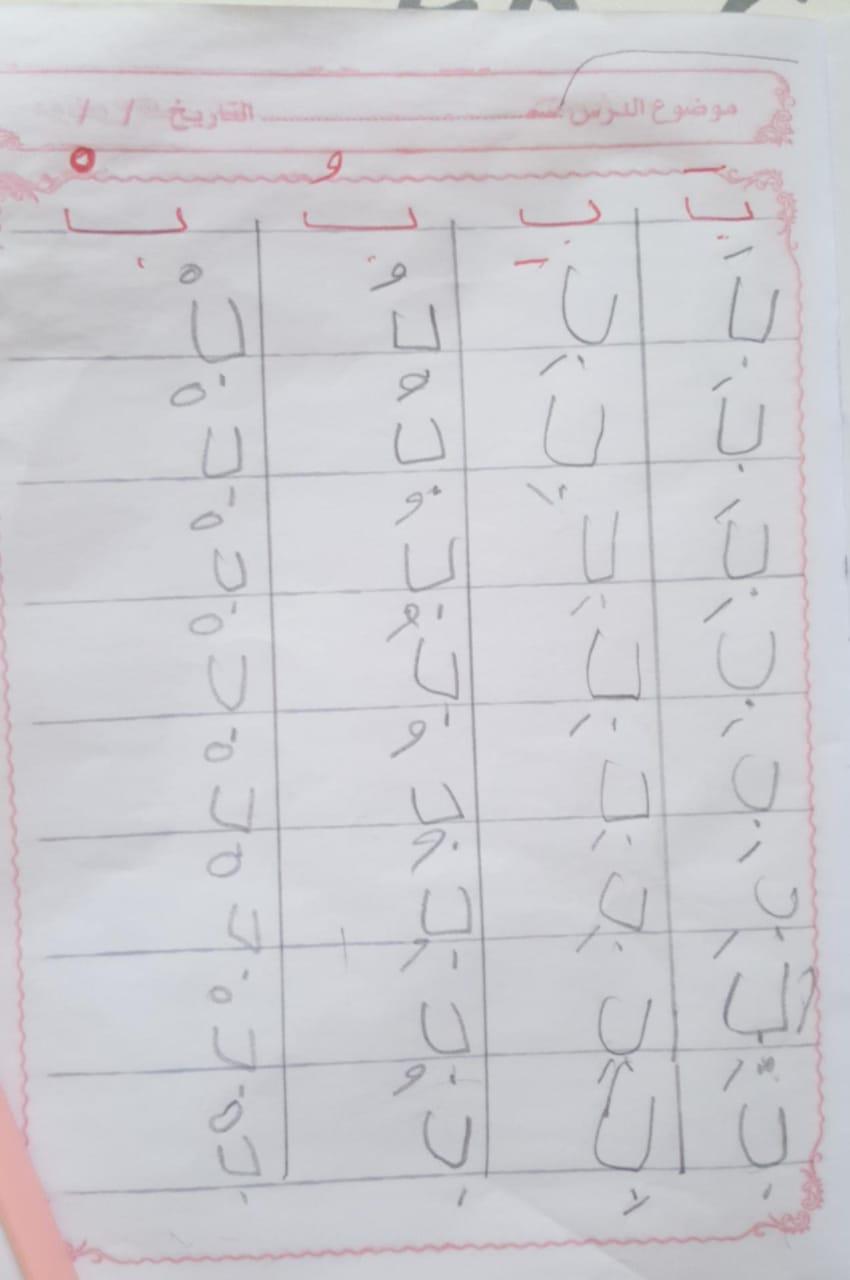 موضوع الدرس ........................ التاريخ / /
بَ بِ بُ بْ
بَ بِ بُ بْ
بَ بِ بُ بْ
بَ بِ بُ بْ
بَ بِ بُ بْ
بَ بِ بُ بْ
بَ بِ بُ بْ
بَ بِ بُ بْ
بَ بِ بُ بْ